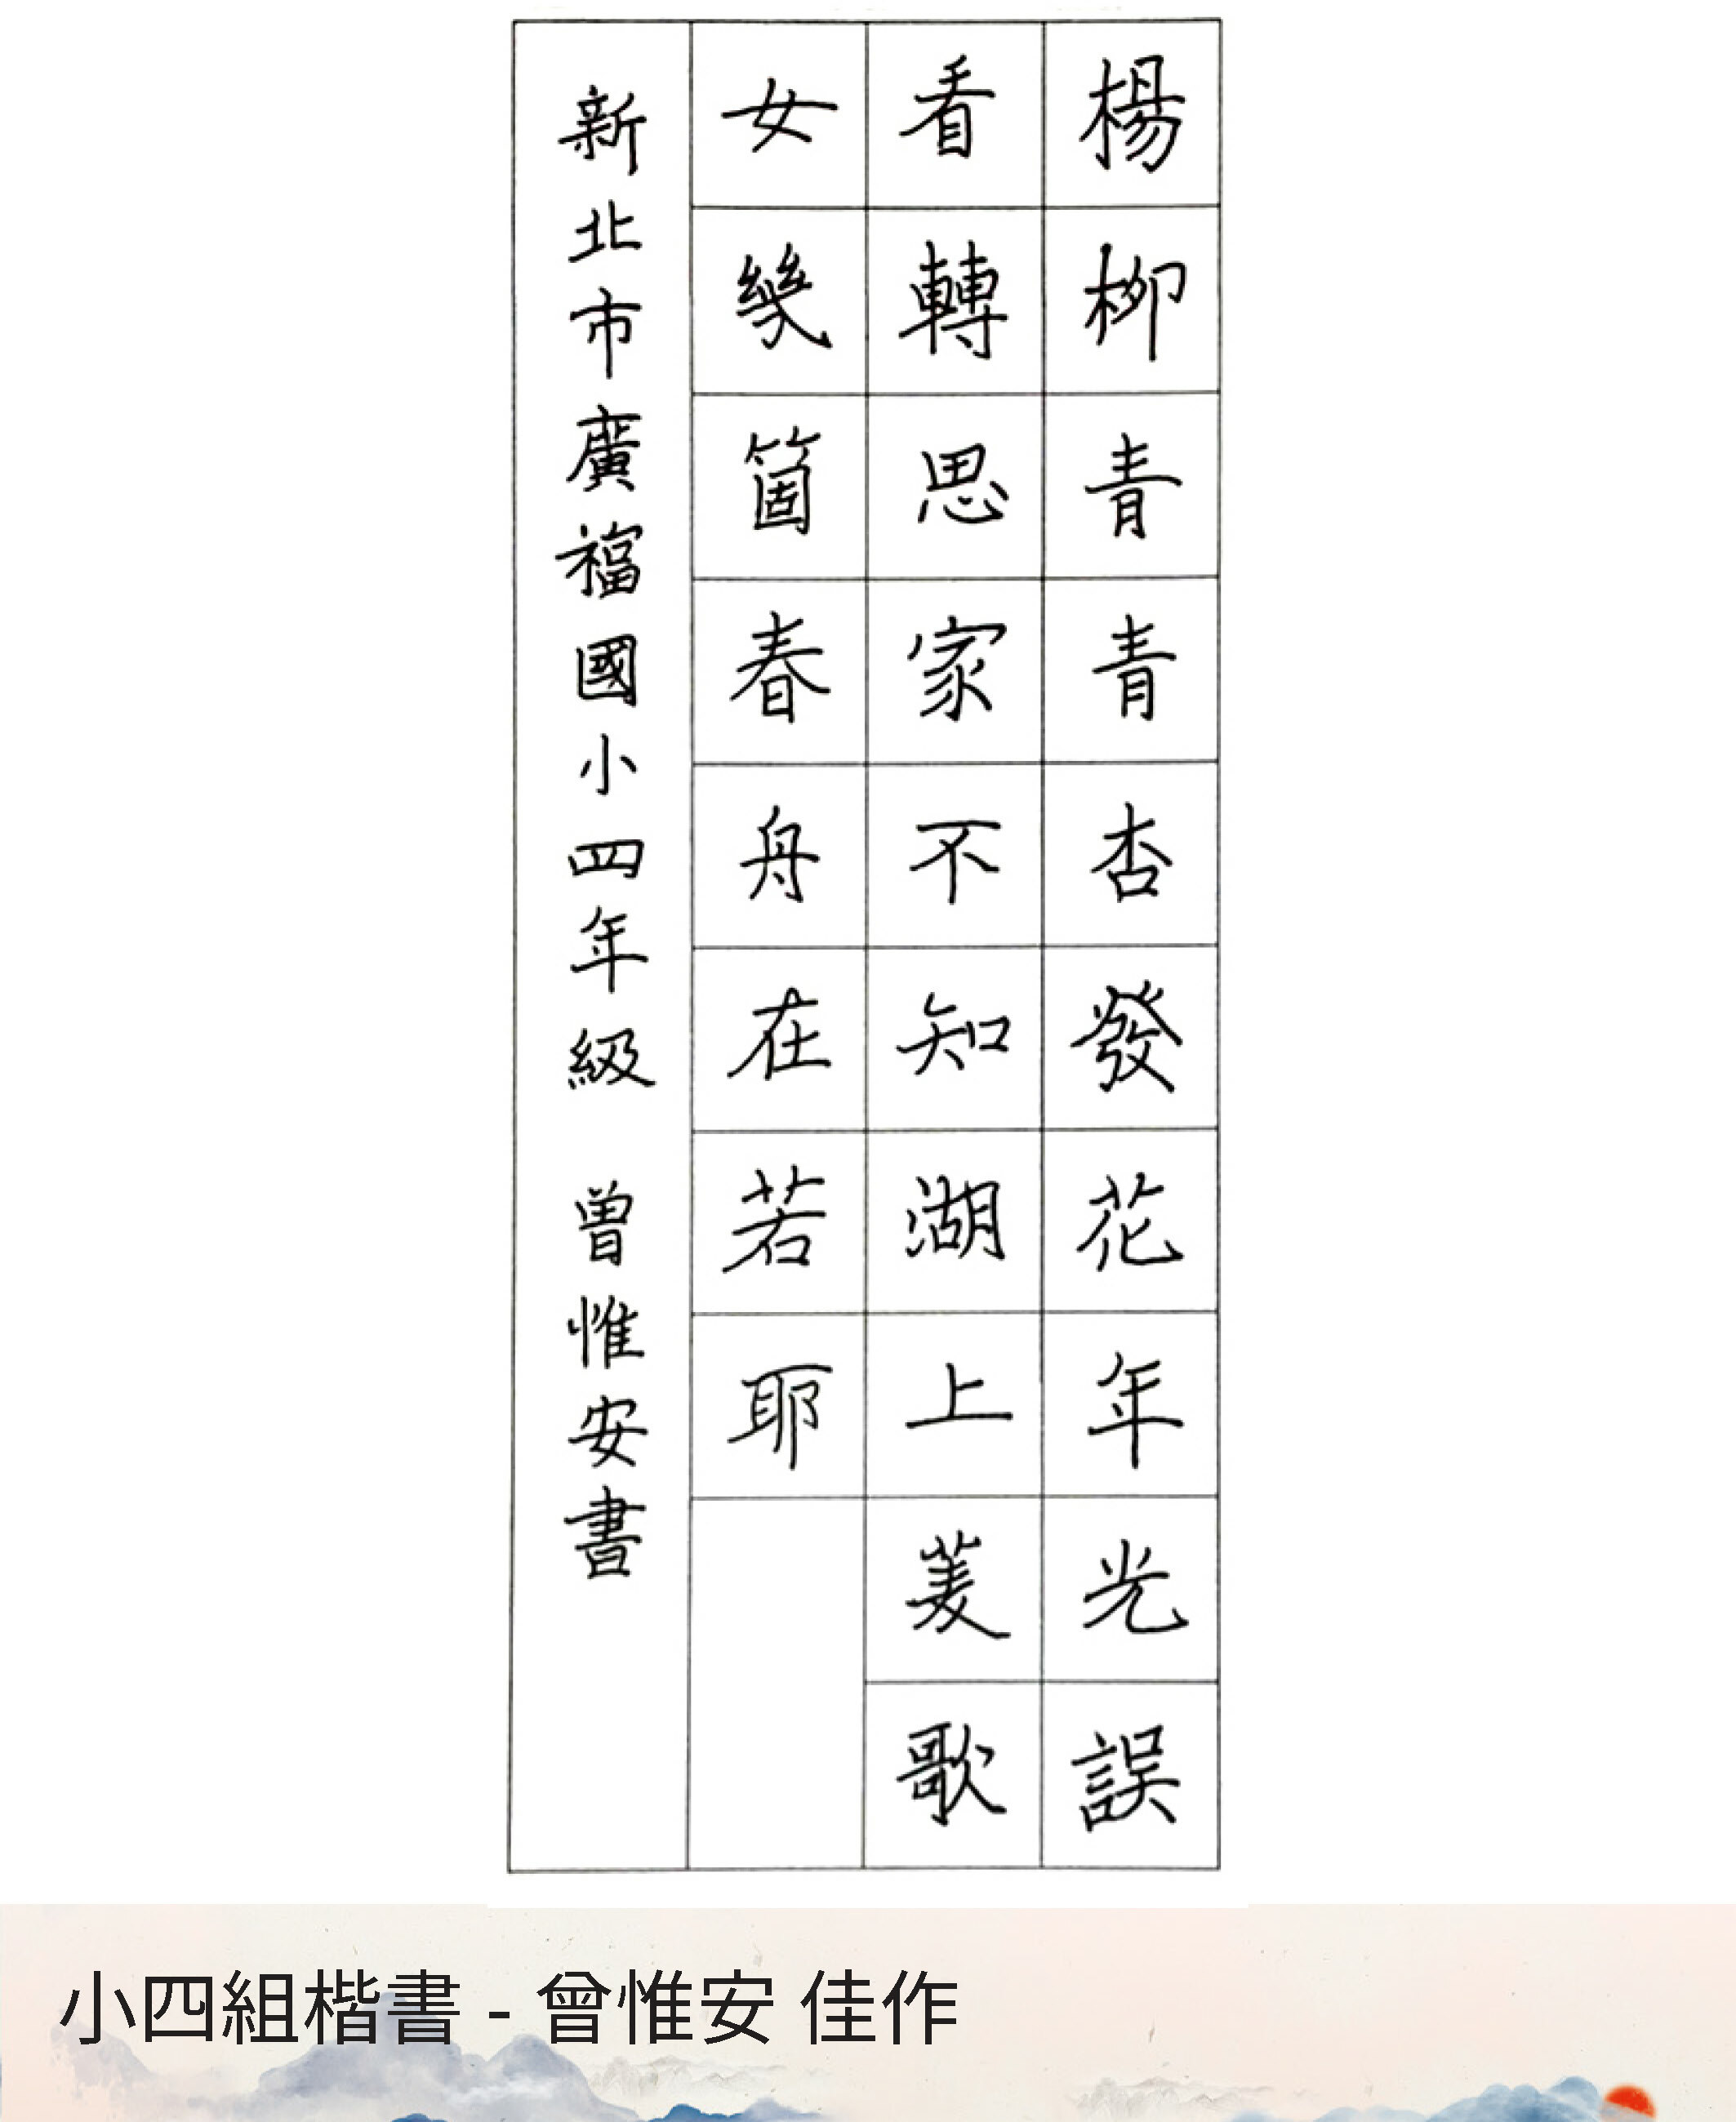 楊柳青青杏發花年光誤
看轉思家不知湖上菱歌
女幾箇春舟在若耶
新北市廣福國小四年級 曾惟安書
小四組楷書 - 曾惟安 佳作